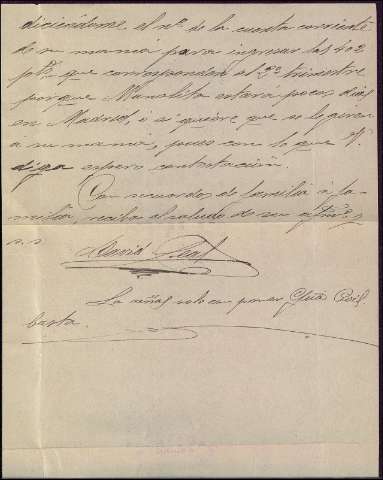 diciéndome el nº de la cuenta corriente
de su mamá para ingresar las 402
pts. que corresponden al 2º trimestre
porque Manolita estará pocos días
en Madrid, o si quiere que se le giren
a su mamá, pues con lo que V.
diga espero contestación.
Con recuerdos de familia á fa-
milia, reciba el saludo de su atmº y
s. s.
David Leal
La señal solo con poner
basta.